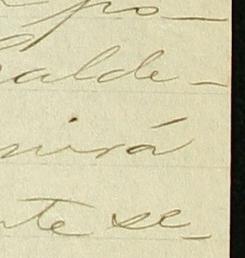 po-
alde-
nirá
nte se-